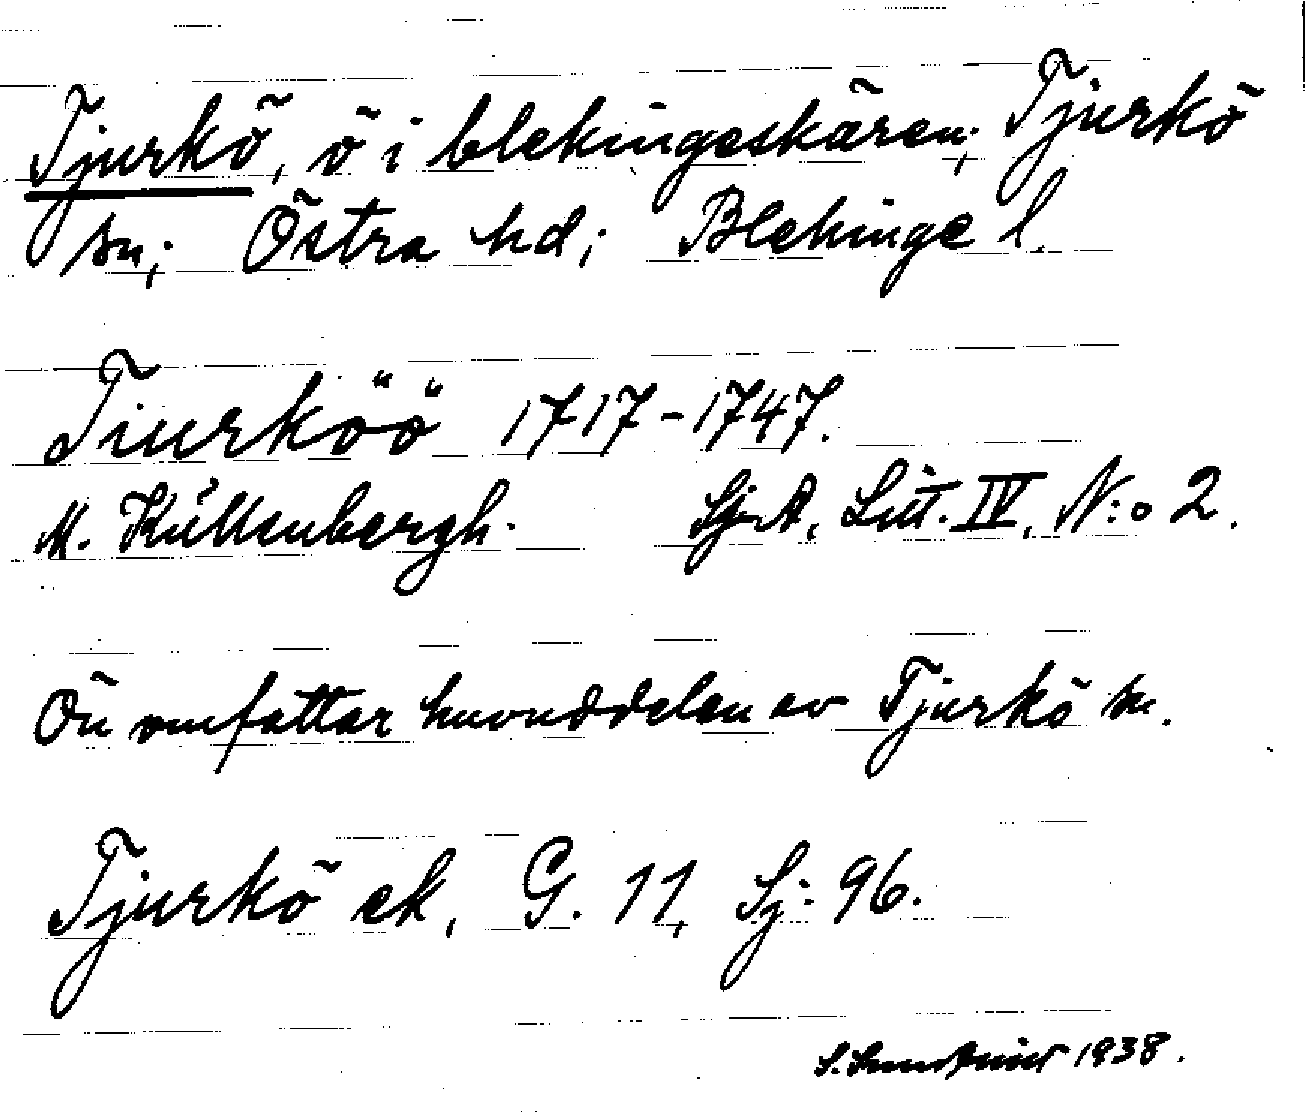 Tjurkö, ö i blekingeskären; Tjurkö
sn; Östra hd; Blekinge l.
Tiurköö 1717-1747.
M. Küllenbergh. Sj.A. Litt. IV, N:o 2.
Ön omfattar huvuddelen av Tjurkö sn.
Tjurkö ek, G. 11, Sj: 96.
S. 1938.